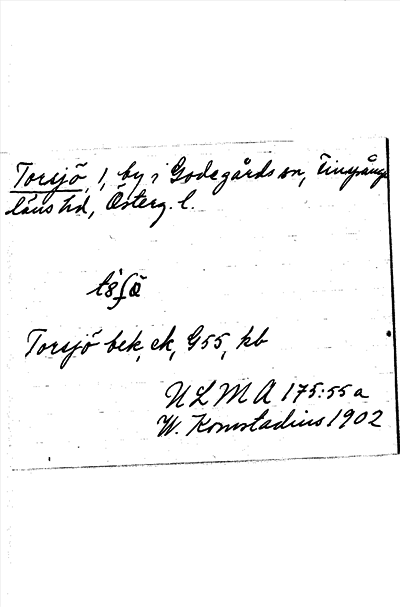 Torsjö, 1, by i Godegårds sn, Finspånga
läns hd, Österg. l.
Torsjö bek, ek, G55, kb
ULMA 175:55a
W. Komstadius 1902